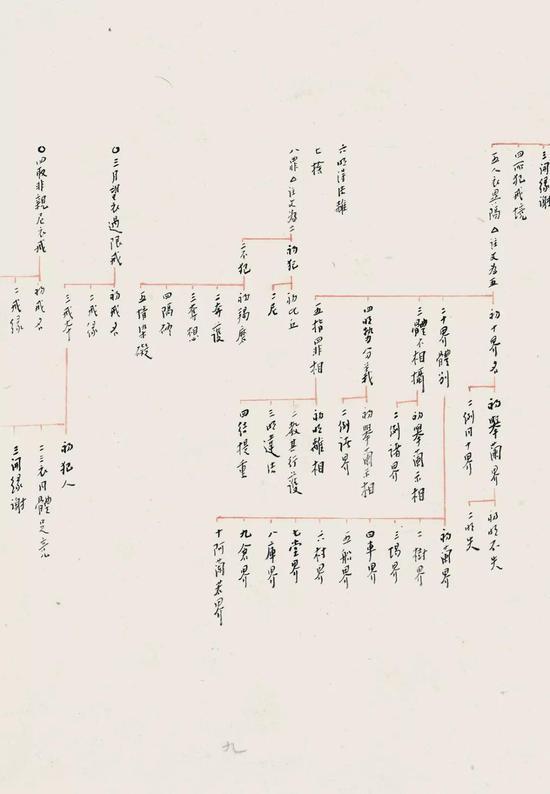 三同緣謝
四所犯戒境
五人衣異隔 △註文為五
初十界名
初舉爾界
初明不失
二明失
二例同十界
二十界體別
初爾界
二樹界
三場界
四車界
五船界
六村界
七堂界
八庫界
九倉界
十阿蘭若界
三體不相攝
初舉爾示相
二例諸界
四明勢分義
初舉爾示相
二例諸界
五指四非相
初明離相
二教其行護
三明違法
四結提重
六明漢法離
七授
八罪 △註文為二
初犯
初比丘
二尼
二不犯
初羯磨
二奪護
三奪想
四隔礙
五情染礙
○三月望衣過限戒
初戒名
二戒緣
三戒本
初犯人
二三衣同體足竟
三同緣謝
○四取非親尼衣戒
初戒名
二戒緣
九